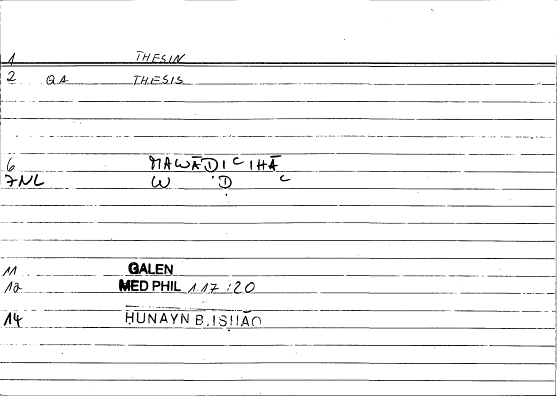 1 THESIN
2 QA THESIS
6 MAWĀḌIᶜIHĀ
7NL W Ḍ ᶜ
11 GALEN
12 MED PHIL 1.17:20
14 ḤUNAYN B. ISḤĀQ